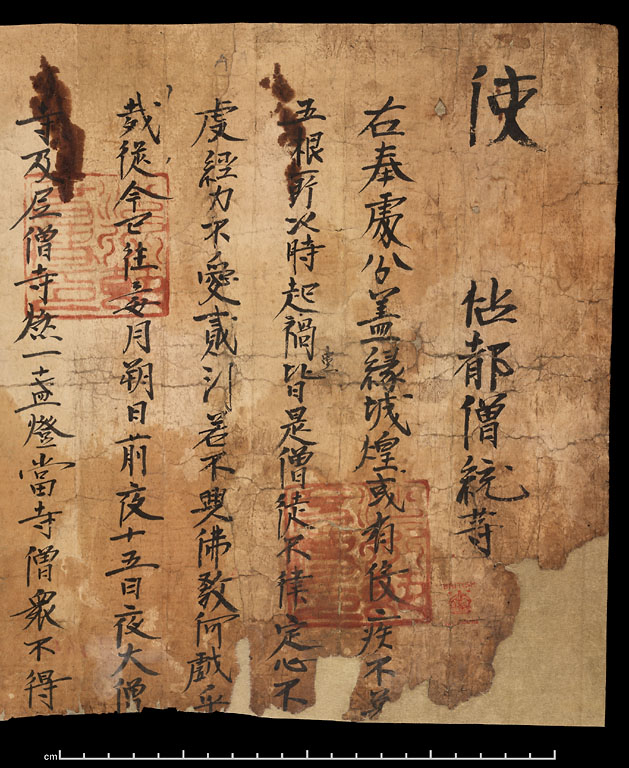 使
帖都僧統等
右奉處分蓋緣城煌或有疫疾不
五根所以時起禍患皆是僧徒不律定心不
虔經力不愛貳行若不興佛教何戲乎
哉從今已往每月朔日前夜十五日夜大僧
寺及尼僧寺燃一盞燈當寺僧眾不得
cm